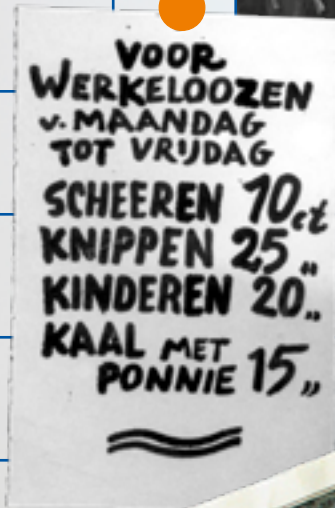 VOOR
WERKELOOZEN
v. MAANDAG
TOT VRIJDAG
SCHEEREN 10 ct
KNIPPEN 25 „
KINDEREN 20 „
KAAL MET
PONNIE 15 „